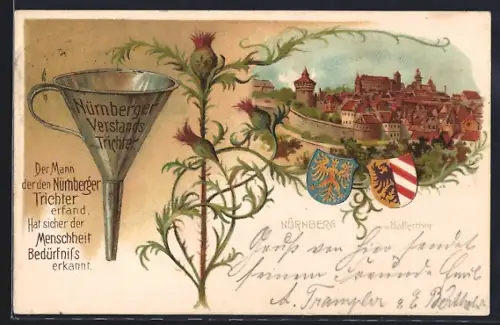 Nürnberger
Verstands
Trichter
Der Mann
der den Nürnberger
Trichter
erfand,
Hat sicher der
Menschheit
Bedürfniss
erkannt.
NÜRNBERG
v. Hallerthor
Gruß von hier sendet
seinem Freunde
A. Trampler